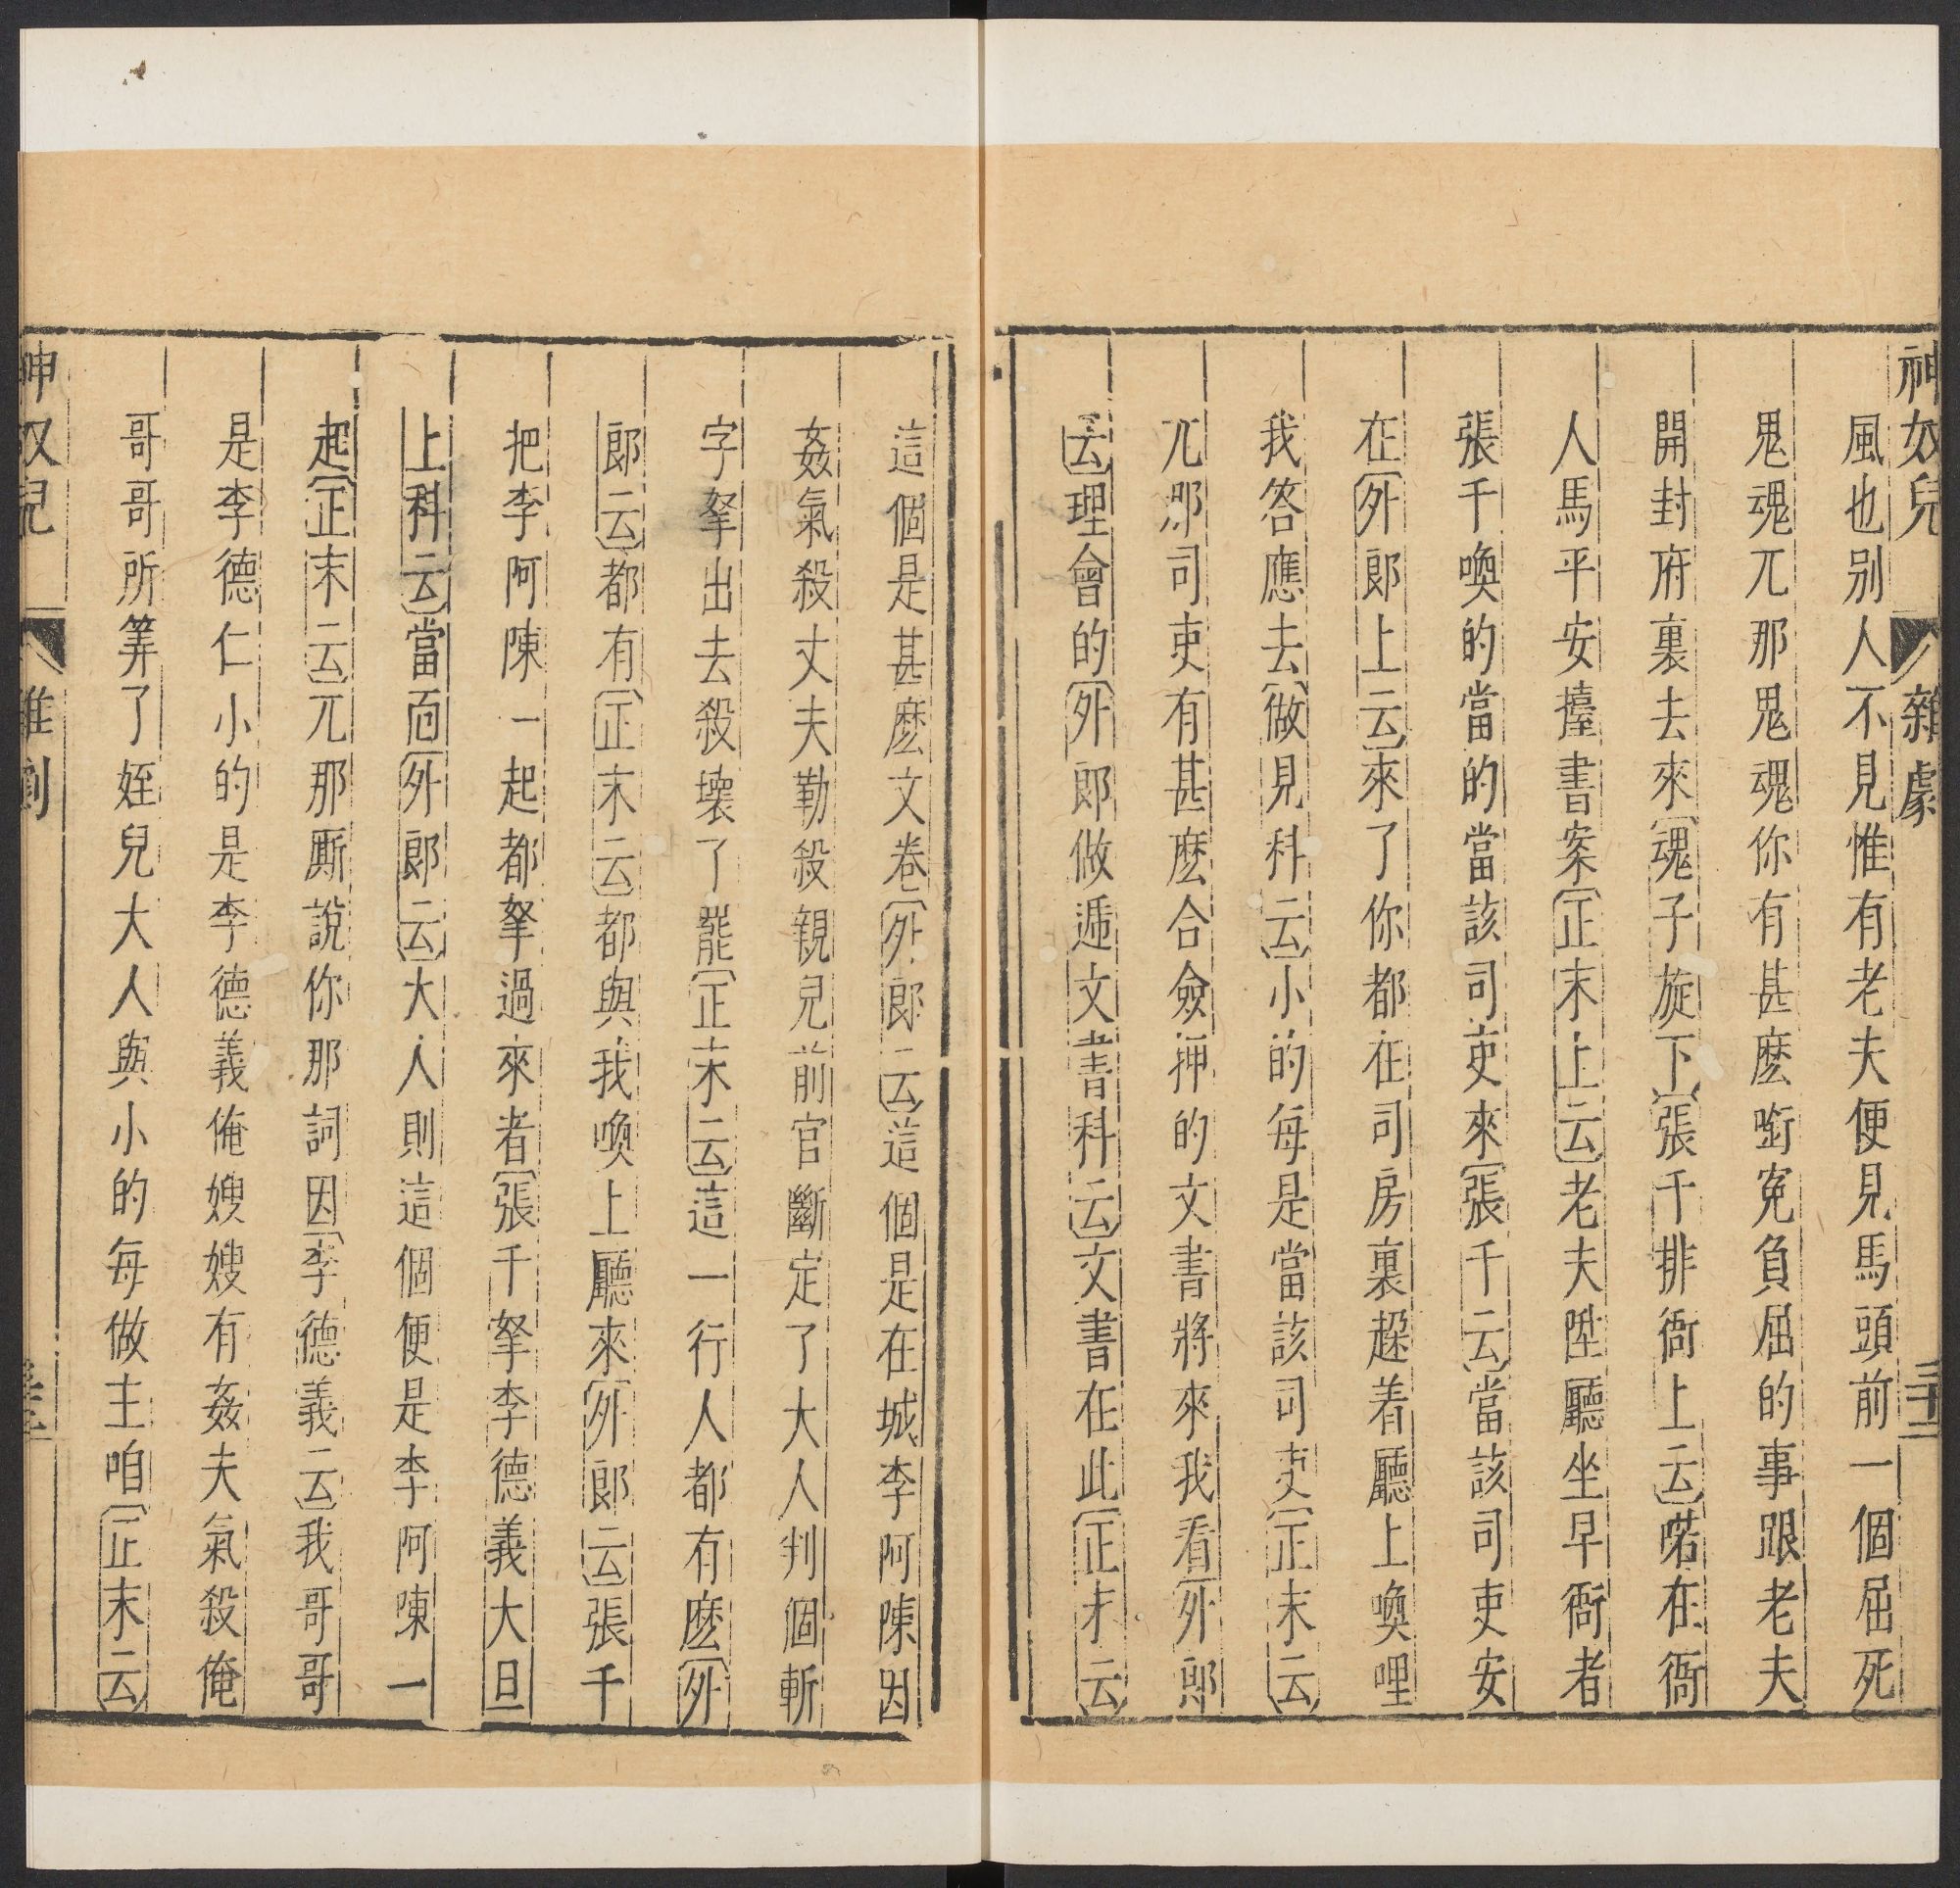 神奴兒 雜劇 二十二
風也別人不見惟有老夫便見馬頭前一個屈死
鬼魂兀那鬼魂你有甚麽啣寃負屈的事跟老夫
開封府裏去來〔魂子旋下〕張千排衙上云〕喏在衙
人馬平安擡書案〔正末上云〕老夫陞廳坐早衙者
張千喚的當的當該司吏來〔張千云〕當該司吏安
在〔外郎上云〕來了你都在司房裏趓着廳上喚哩
我答應去〔做見科云〕小的每是當該司吏〔正末云〕
兀那司吏有甚麽合僉押的文書將來我看〔外郎
云〕理會的〔外郎做遞文書科云〕文書在此〔正末云〕
這個是甚麽文卷〔外郎云〕這個是在城李阿陳因
姦氣殺丈夫勒殺親兒前官斷定了大人判個斬
字拏出去殺壞了罷〔正末云〕這一行人都有麽〔外
郎云〕都有〔正末云〕都與我喚上廳來〔外郎云〕張千
把李阿陳一起都拏過來者〔張千拏李德義大旦
上科云〕當面〔外郎云〕大人則這個便是李阿陳一
起〔正末云〕兀那厮說你那詞因〔李德義云〕我哥哥
是李德仁小的是李德義俺嫂嫂有姦夫氣殺俺
哥哥所筭了姪兒大人與小的每做主咱〔正末云〕
神奴兒 雜劇